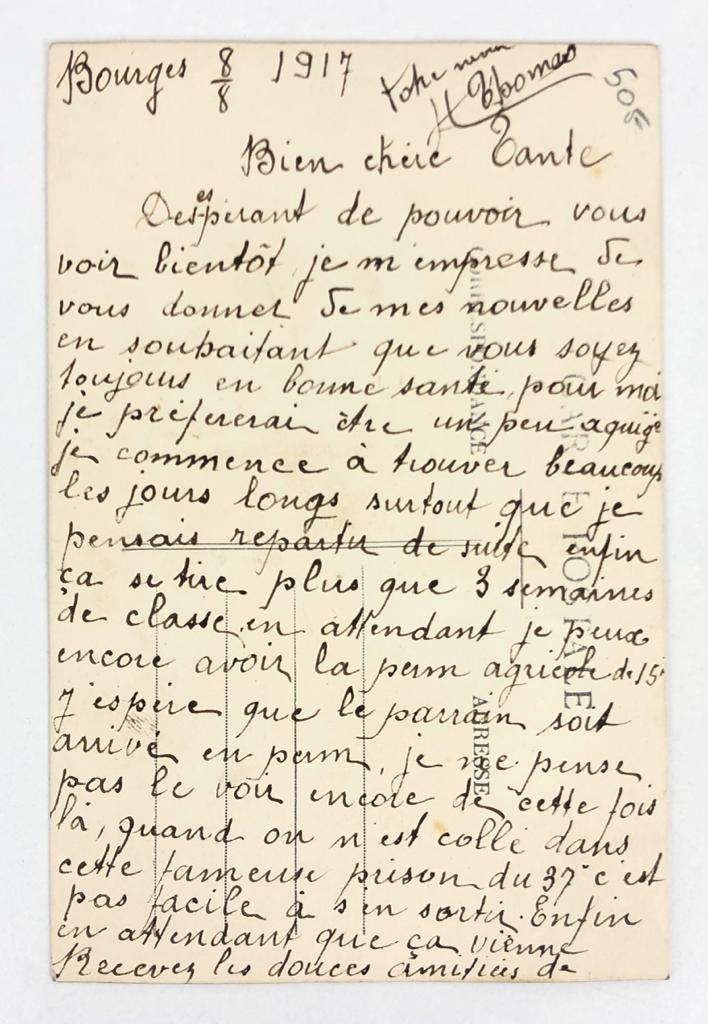 Bourges 8/8 1917
505
Bien chère Tante
Desespérant de pouvoir vous
voir bientôt je m'empresse de
vous donner de mes nouvelles
en souhaitant que vous soyez
toujours en bonne santé, pour moi
je préfererai être un peu aquigé
je commence à trouver beaucoup
les jours longs surtout que je
pensais repartir de suite enfin
ça se tire plus que 3 semaines
de classe, en attendant je peux
encore avoir la perm agricole de 15
j'espère que le parrain soit
arrivé en perm, je ne pense
pas le voir encore de cette fois
là, quand on n'est collé dans
cette fameuse prison du 37e c'est
pas facile à s'en sortir. Enfin
en attendant que ça vienne
Recevez les douces amitiées de
Votre neveu
H Thomas
CARTE POSTALE
CORRESPONDANCE
ADRESSE